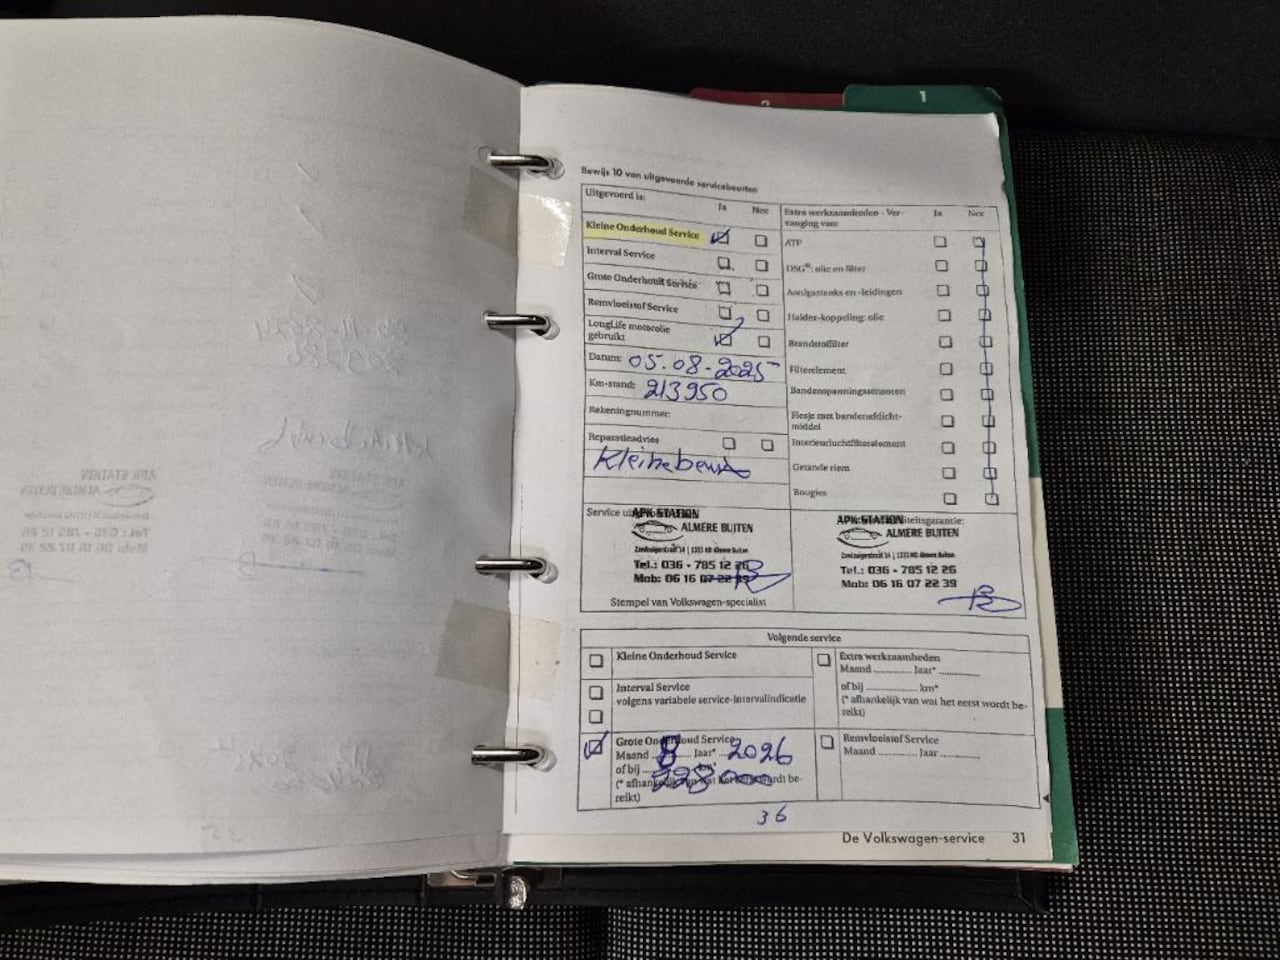 2
1
Bewijs 10 van uitgevoerde servicebeurten
Uitgevoerd is:
Ja
Nee
Kleine Onderhoud Service
Interval Service
Grote Onderhoud Service
Remvloeistof Service
LongLife motorolie
gebruikt
Datum: 05.08-2025
Km-stand: 213950
Rekeningnummer:
Reparatieadvies
Kleine beurt
Extra werkzaamheden - Ver-
vanging van:
Ja
Nee
ATF
DSG®: olie en filter
Aardgastanks en -leidingen
Haldex-koppeling: olie
Brandstoffilter
Filterelement
Bandenspanningssensoren
Flesje met bandenafdicht-
middel
Interieurluchtfilterelement
Getande riem
Bougies
Service
APK STATION
ALMERE BUITEN
Tel.: 036 - 785 12 26
Mob: 06 16 07 22 39
Stempel van Volkswagen-specialist
APK STATION
ALMERE BUITEN
Tel.: 036 - 785 12 26
Mob: 06 16 07 22 39
Volgende service
Kleine Onderhoud Service
Interval Service
volgens variabele service-intervalindicatie
Grote Onderhoud Service
Maand 8 Jaar* 2026
of bij 228000 km*
(* afhankelijk van wat het eerst wordt be-
reikt)
Extra werkzaamheden
Maand ............ Jaar* ............
of bij ............... km*
(* afhankelijk van wat het eerst wordt be-
reikt)
Remvloeistof Service
Maand ............ Jaar ............
36
De Volkswagen-service 31